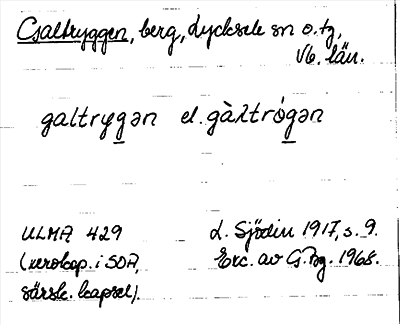 Galtryggen, berg, Lycksele sn o. tg,
Vb. län.
galtrygən el. gàltrógən
ULMA 429
(xerokop. i SOA,
särsk. kapsel).
L. Sjödin 1917, s. 9.
Exc. av G. Bg. 1968.